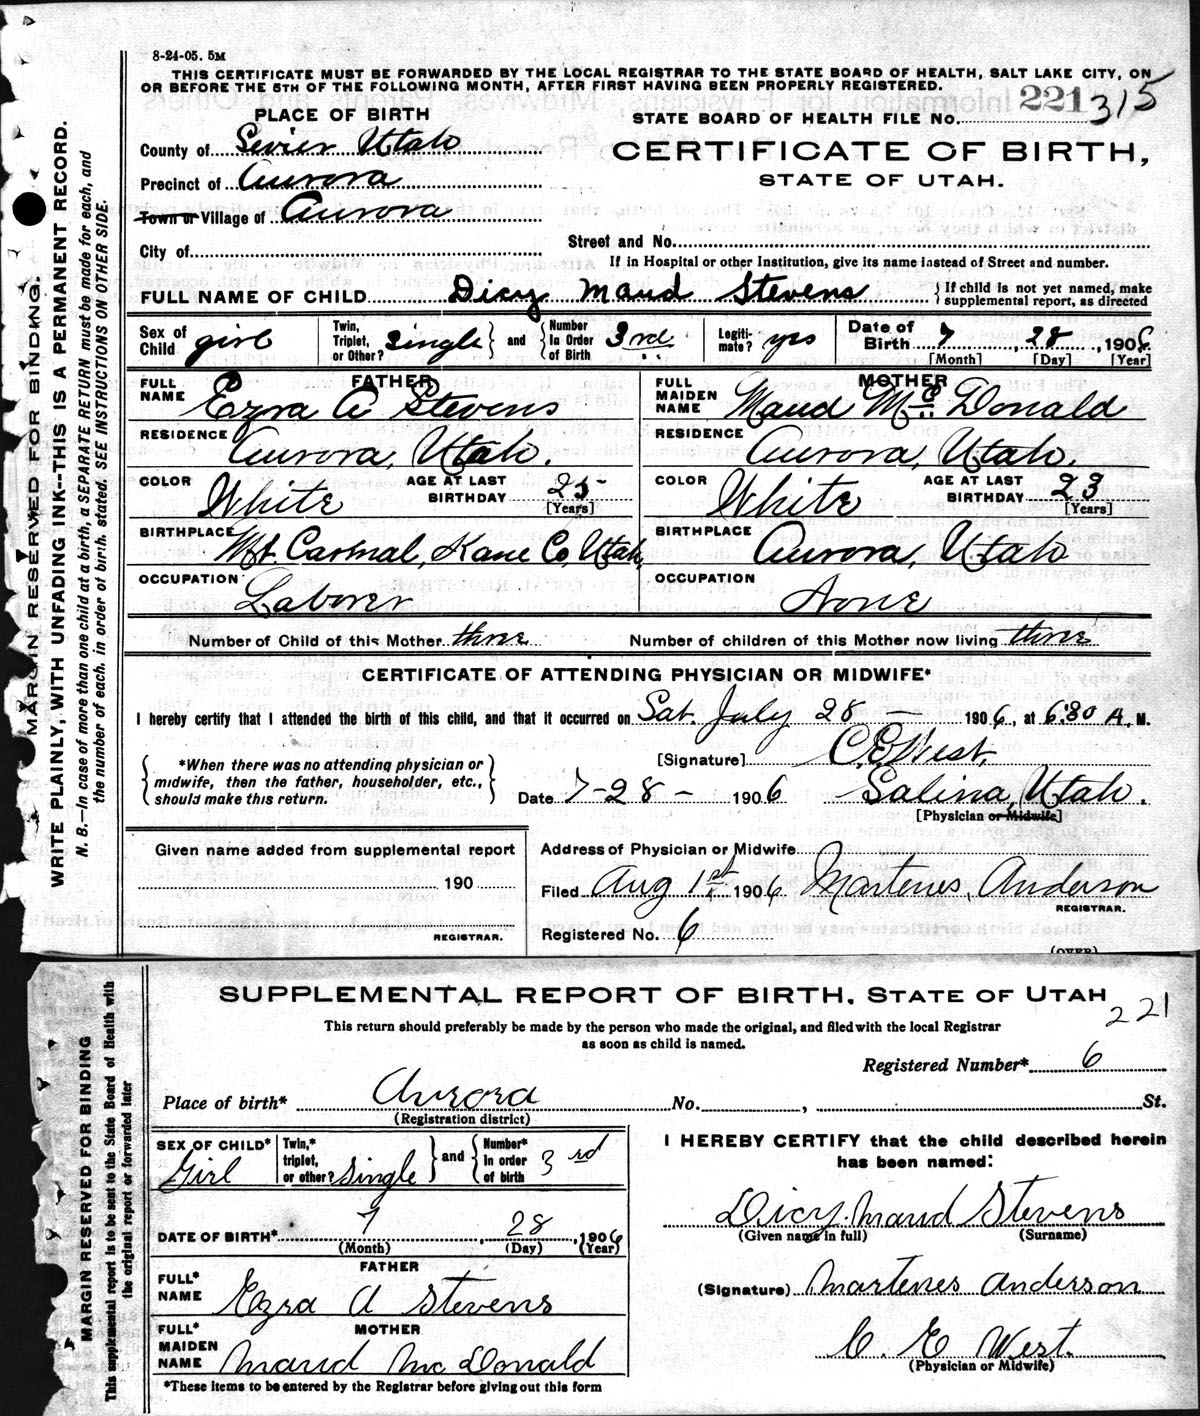 8-24-05. 5M
THIS CERTIFICATE MUST BE FORWARDED BY THE LOCAL REGISTRAR TO THE STATE BOARD OF HEALTH, SALT LAKE CITY, ON
OR BEFORE THE 5TH OF THE FOLLOWING MONTH, AFTER FIRST HAVING BEEN PROPERLY REGISTERED.
PLACE OF BIRTH
STATE BOARD OF HEALTH FILE NO. 221 315
County of Sevier Utah
CERTIFICATE OF BIRTH,
Precinct of Aurora
STATE OF UTAH.
Town or Village of Aurora
City of
Street and No.
If in Hospital or other Institution, give its name instead of Street and number.
FULL NAME OF CHILD Dicy Maud Stevens { If child is not yet named, make
supplemental report, as directed
Sex of Child girl
Twin, Triplet, or Other? Single } and { Number In Order of Birth 3rd
Legiti-mate? yes
Date of Birth 7 28, 1906
[Month] [Day] [Year]
FATHER
FULL NAME Ezra A Stevens
MOTHER
FULL MAIDEN NAME Maud Mc Donald
RESIDENCE Aurora, Utah.
RESIDENCE Aurora, Utah.
COLOR White AGE AT LAST BIRTHDAY 25 [Years]
COLOR White AGE AT LAST BIRTHDAY 23 [Years]
BIRTHPLACE Mt. Carmal, Kane Co, Utah,
BIRTHPLACE Aurora, Utah
OCCUPATION Laborer
OCCUPATION None
Number of Child of this Mother three
Number of children of this Mother now living three
CERTIFICATE OF ATTENDING PHYSICIAN OR MIDWIFE*
I hereby certify that I attended the birth of this child, and that it occurred on Sat. July 28 — 1906, at 6:30 A. M.
*When there was no attending physician or
midwife, then the father, householder, etc.,
should make this return.
[Signature] C. E. West,
Date 7-28- 1906 Salina, Utah.
[Physician or Midwife]
Given name added from supplemental report
190
REGISTRAR.
Address of Physician or Midwife
Filed Aug 1st 1906 Martenes Anderson
REGISTRAR.
Registered No. 6
(OVER)
MARGIN RESERVED FOR BINDING.
WRITE PLAINLY, WITH UNFADING INK--THIS IS A PERMANENT RECORD.
N. B.—In case of more than one child at a birth, a SEPARATE RETURN must be made for each, and
the number of each, in order of birth, stated. SEE INSTRUCTIONS ON OTHER SIDE.
SUPPLEMENTAL REPORT OF BIRTH, STATE OF UTAH
221
This return should preferably be made by the person who made the original, and filed with the local Registrar
as soon as child is named.
Registered Number* 6
Place of birth* Aurora No. , St.
(Registration district)
SEX OF CHILD* Girl
Twin,* triplet, or other? Single } and { Number* in order of birth 3rd
DATE OF BIRTH* 7, 28, 1906
(Month) (Day) (Year)
FATHER
FULL* NAME Ezra A Stevens
MOTHER
FULL* MAIDEN NAME Maud Mc Donald
*These items to be entered by the Registrar before giving out this form
I HEREBY CERTIFY that the child described herein
has been named:
Dicy Maud Stevens
(Given name in full) (Surname)
(Signature) Martenes Anderson
C. E. West.
(Physician or Midwife)
MARGIN RESERVED FOR BINDING
This supplemental report is to be sent to the State Board of Health with
the original report or forwarded later